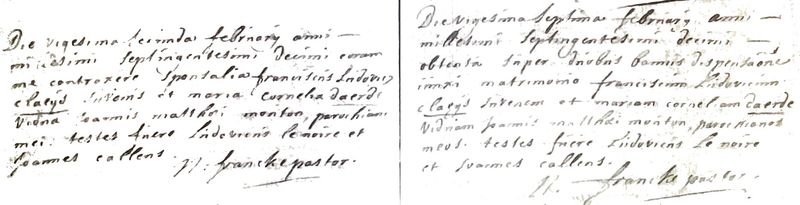 Die vigesima secunda februarij anni —
millesimi septingentesimi decimi coram
me contraxere sponsalia franciscus Ludovicus
claeijs Juvenis et maria cornelia daerde
vidua Joannis matthӕi monton, parochiani
mei. testes fuere Ludovicus lenoire et
Joannes callens.
francke pastor.
Die vigesima septima februarij anni —
millesimi septingentesimi decimi —
obtenta super duobus bannis dispensaõne
iunxi matrimonio franciscum Ludovicum
claeijs Juvenem et mariam corneliam daerde
viduam Joannis matthӕi monton, parochianos
meos. testes fuere Ludovicus Le noire
et Joannes callens.
francke pastor.